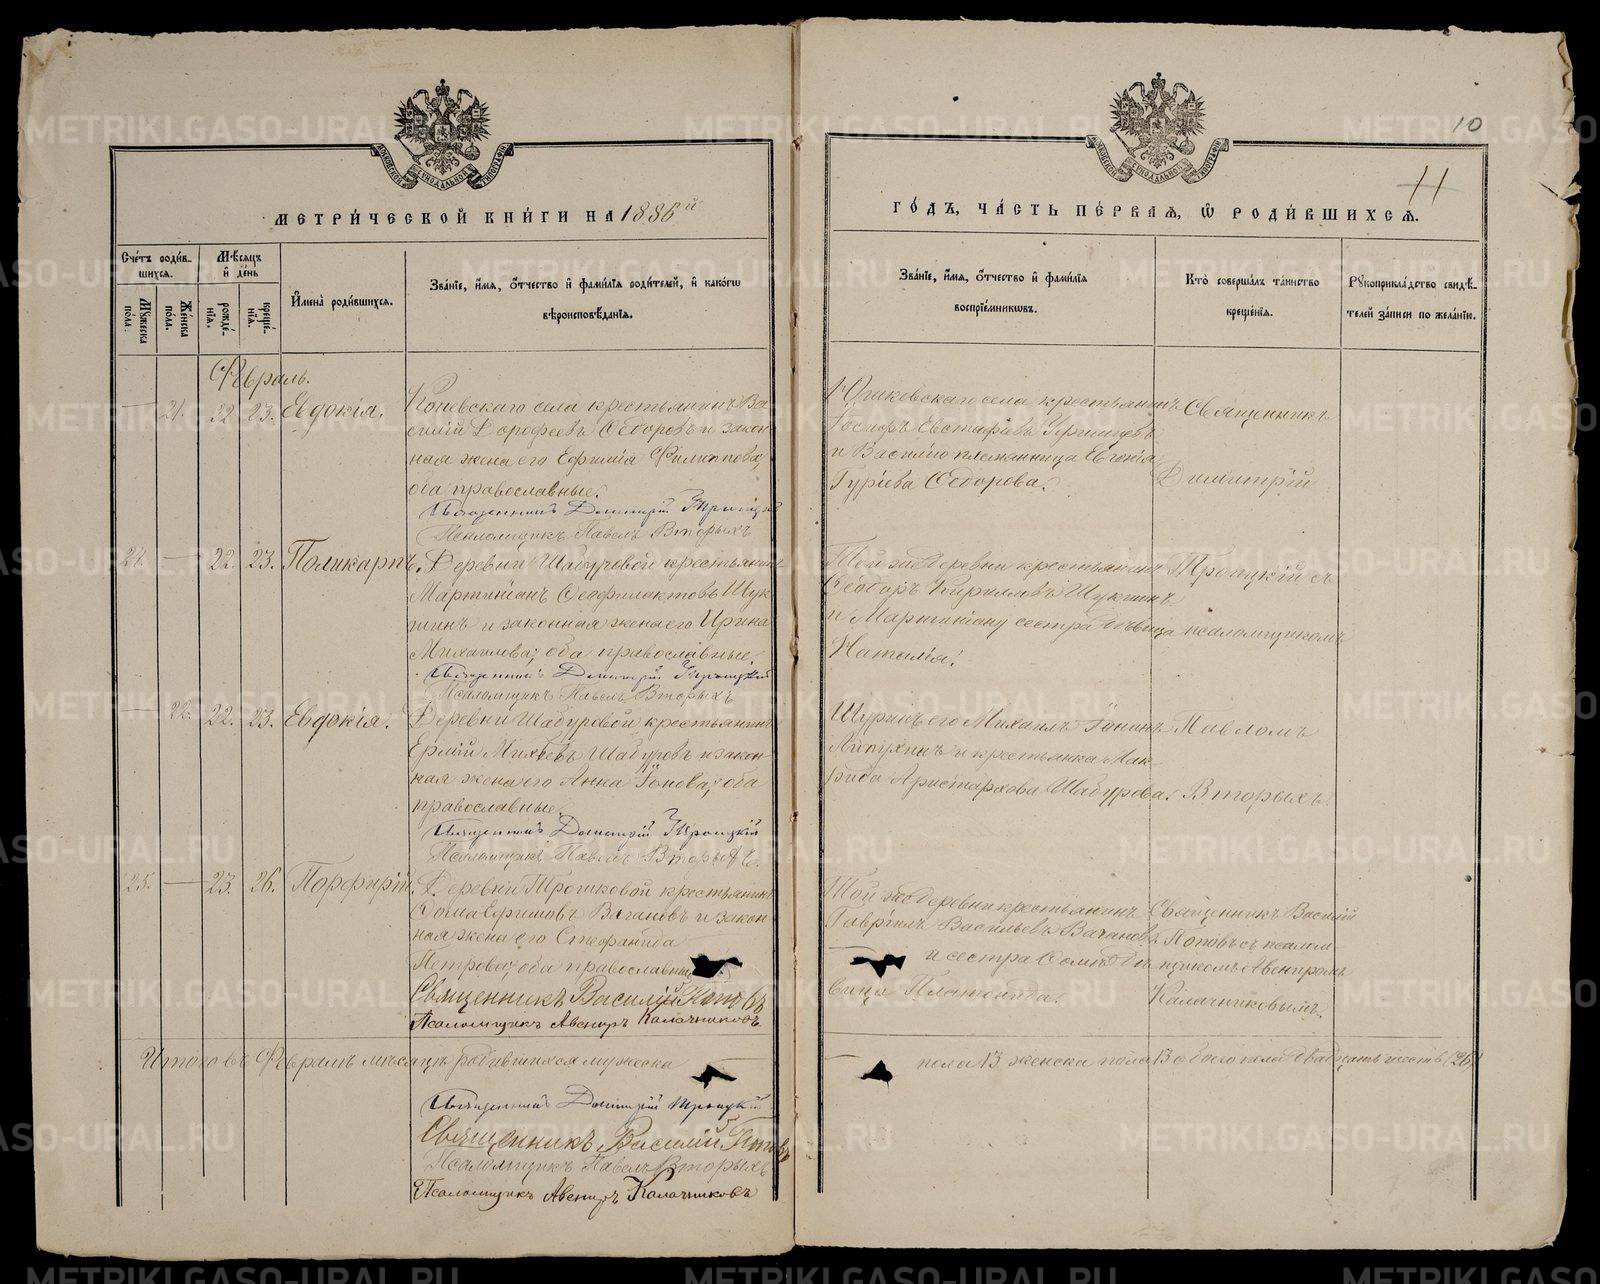 10
11
МЕТРИ́ЧЕСКОЙ КНИ́ГИ НА 1886й
ГО́ДЪ, ЧА́СТЬ ПЕ́РВАѦ, Ѡ РОДИ́ВШИХСѦ.
Сче́тъ роди́в-
шихсѧ.
Мѣ́сѧцъ
и́ де́нь
Мꙋжеска по́ла.
Же́нска по́ла.
рожде́-
нїѧ.
креще́-
нїѧ.
И҆мена̀ роди́вшихсѧ.
Зва́нїе, и҆́мѧ, ѻ҆́тчество и҆ фамѝлїѧ роди́телей, и҆ како́гѡ
вѣроисповѣ́данїѧ.
Зва́нїе, и҆́мѧ, ѻ҆́тчество и҆ фамѝлїѧ
воспрїе́мникѡвъ.
Кто̀ соверша́лъ та́инство
креще́нїѧ.
Рꙋкоприкла́дство свидѣ́-
телей за́писи по жела́нїю.
Февраль.
21. 22. 23. Евдокія.
Коневскаго села крестьянинъ Ва-
силій Дорофеевъ Ѳедоровъ и закон-
ная жена его Ефимія Филиппова,
оба православные.
Священникъ Димитрій Троицкій
Псаломщикъ Павелъ Вторыхъ
села крестьянинъ
Евстафіевъ
и Василію племянница Евгенія
Гуріева Ѳедорова.
Священникъ
Димитрій
24. 22. 23. Поликарпъ.
Деревни Шабуровой крестьянинъ
Мартиніанъ Ѳеофилактовъ Щук-
инъ и законная жена его Ирина
Михаилова, оба православные.
Священникъ Димитрій Троицкій
Псаломщикъ Павелъ Вторыхъ
Той же деревни крестьянинъ
Ѳеодоръ Кирилловъ Щукинъ
и Мартиніану сестра дѣвица
Наталія.
Троицкій съ
псаломщикомъ
22. 22. 23. Евдокія.
Деревни Шабуровой крестьянинъ
Ермій Михѣевъ Шабуровъ и закон-
ная жена его Анна Іонова, оба
православные.
Священникъ Димитрій Троицкій
Псаломщикъ Павелъ Вторыхъ
Шуринъ его Михаилъ Іонинъ
и крестьянка Мак-
рида Аристархова Шабурова.
Павломъ
Вторыхъ.
25. 23. 26. Порфирій.
Деревни Трошковой крестьянинъ
Ѳома Ефимовъ Вагановъ и закон-
ная жена его Стефанида
Петрова, оба православные
Священникъ Василій Поповъ
Псаломщикъ Авениръ Калачниковъ.
Той же деревни крестьянинъ
Гавріилъ Васильевъ Вагановъ
и сестра Ѳомы дѣ-
вица Платонида.
Священникъ Василій
Поповъ съ псалом-
щикомъ Авениромъ
Калачниковымъ.
Итого въ Февралѣ мѣсяцѣ родившихся мужеска
пола 13 женска пола 13 обоего пола двадцать шесть (26)
Священникъ Димитрій Троицкій
Священникъ Василій Поповъ
Псаломщикъ Павелъ Вторыхъ
Псаломщикъ Авениръ Калачниковъ
METRIKI.GASO-URAL.RU